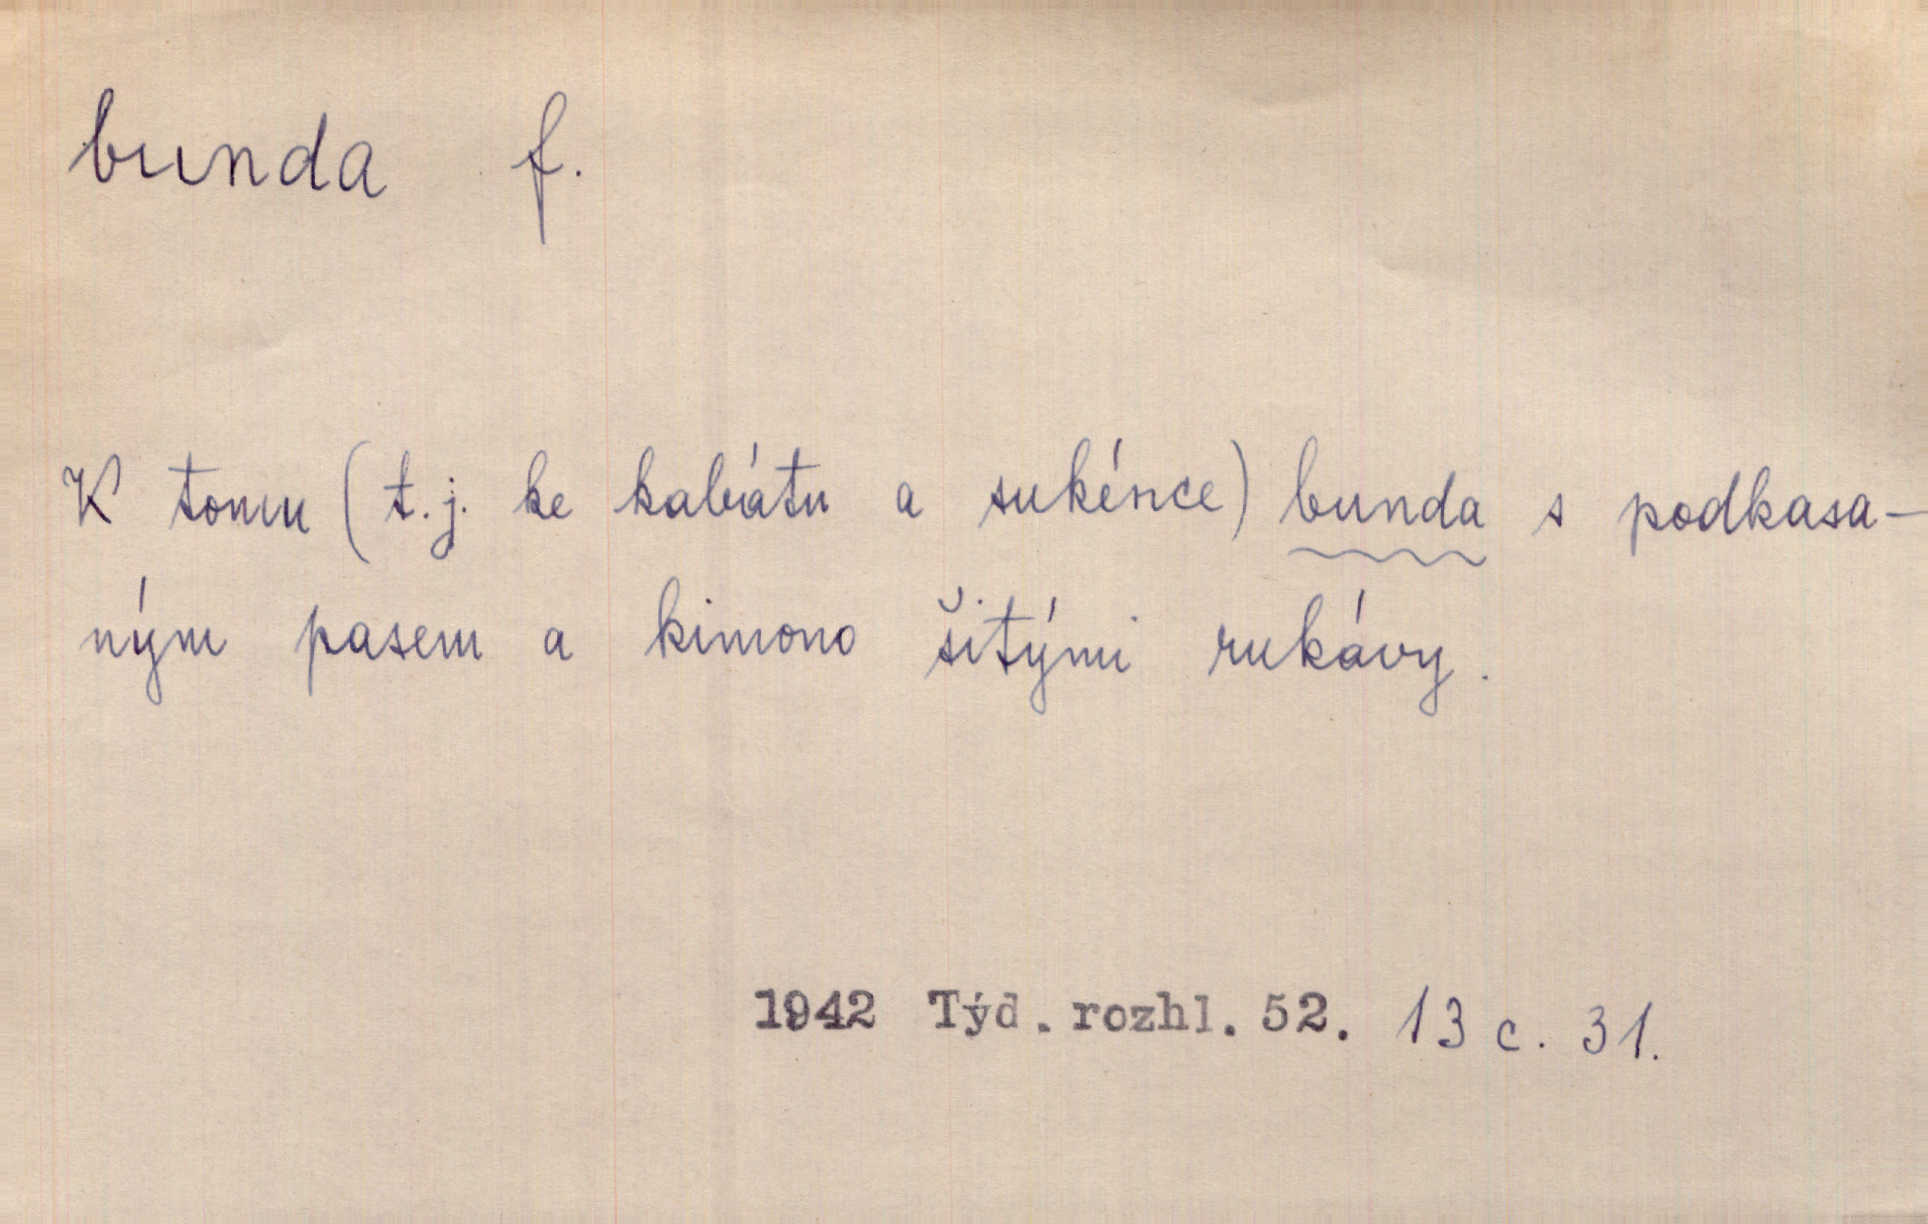 bunda f.
K tomu (t.j. ke kabátu a sukénce) bunda s podkasa-
ným pasem a kimono šitými rukávy.
1942 Týd. rozhl. 52. 13 c. 31.